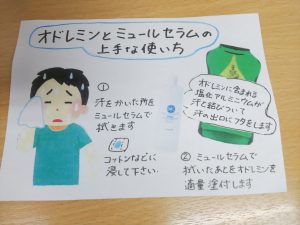 オドレミンとミュールセラムの
上手な使い方
①
汗をかいた所を
ミュールセラムで
拭きます
コットンなどに
浸して下さい。
オドレミンに含まれる
塩化アルミニウムが
汗と結びついて
汗の出口にフタをします
② ミュールセラムで
拭いたあとをオドレミンを
適量塗付します